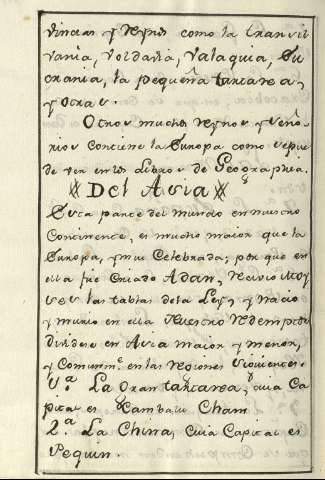 vincias y Reynos como la Transil
vania, Voldavia, Valaquia, Su
crania, la pequeña tartarea,
y otras.
Otros muchos Reynos y Seño
rios contiene la Europa como se pue
de ver en los Libros de Geographia.
Del Asia
Esta parte del mundo en nuestro
Continente, es mucho maior que la
Europa, y mui Celebrada; por que en
ella fue Criado Adan, Recivio Moy
ses las tablas de la Ley, y nacio
y murio en ella Nuestro Redemptor
dividese en Asia maior y menor,
y Comunmte. en las Regiones siguientes.
1.ª La Gran tartarea, cuia Ca
pital es Kambalu Cham
2.ª La China, cuia Capital es
Pequin.